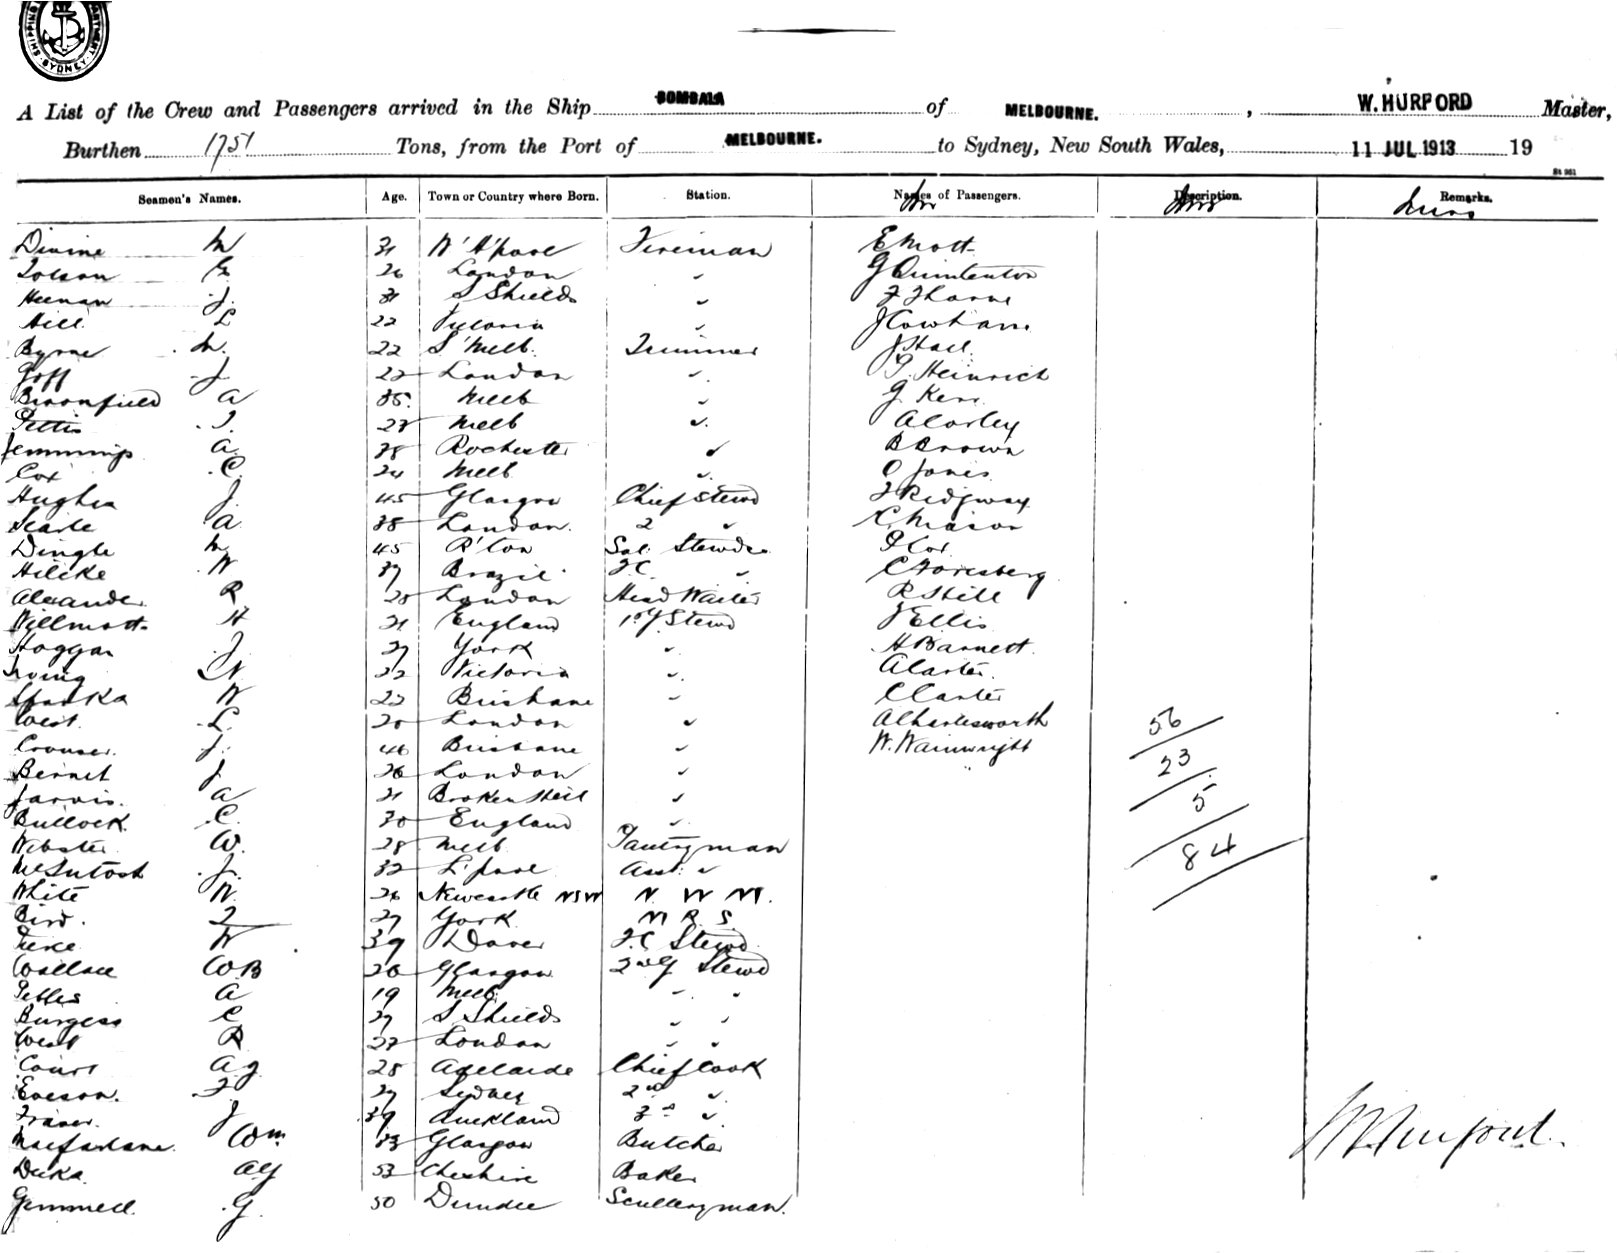 SHIPPING DEPARTMENT SYDNEY
A List of the Crew and Passengers arrived in the Ship BOMBALA of MELBOURNE. , W. HURFORD Master,
Burthen 1751 Tons, from the Port of MELBOURNE. to Sydney, New South Wales, 11 JUL 1913 19
St 961
Seamen's Names. Age. Town or Country where Born. Station. Names of Passengers. Description. Remarks.
M 31 W'H'pool Fireman E Mott
26 London " G Quintenton
Heenan J. 31 S Shields " F Thorne
Hill L 22 Victoria " J Cowham
Byrne M. 22 S' Melb. Trimmer J Hall
Goff J 22 London " Heinrich
Broomfield A 35. Melb " G Kerr
Pettis 27 Melb " A Corley
Jemmings A. 28 Rochester " B Brown
Cox C. 24 Melb " C Jones
Hughes J. 45 Glasgow Chief Stewd J Ridgway
Searle A. 38 London. 2 " C Mason
Dingle M 45 R'ton Sal. Stewdss Cox
Hilcke W 37 Brazil F.C. " C Foresberg
Alexander R 25 London Head Waiter R Still
Willmott H 21 England 1st Stewd J Ellis
Hoggan J. 27 York " H Barnett
Irving N 22 Victoria " A Carter.
W 22 Brisbane " C Carter
West. L. 20 London " A Charlesworth 56
Crouser. J. 46 Brisbane " W. Wainwright
Bennet J 26 London " 23
Jarvis. A 21 Broken Hill " 5
Bullock C. 30 England "
Webster W. 28 Melb Pantryman 84
McIntosh J. 32 L'pool Asst. "
White W. 26 Newcastle NSW N. W M.
Bird. 27 York M R S
W 39 Dover F.C Stewd.
Wallace W B 20 Glasgow 2nd Stewd
A 19 Melb. " "
Burgess C 27 S Shields " "
West R 22 London " "
Court A J. 28 Adelaide Chief Cook
Eveson. F 27 Sydney 2nd "
Fraser. J 39 Auckland 3rd "
Macfarlane. Wm 23 Glasgow Butcher
53 Cheshire Baker
Gemmell. G. 50 Dundee Sculleryman.
W Hurford.